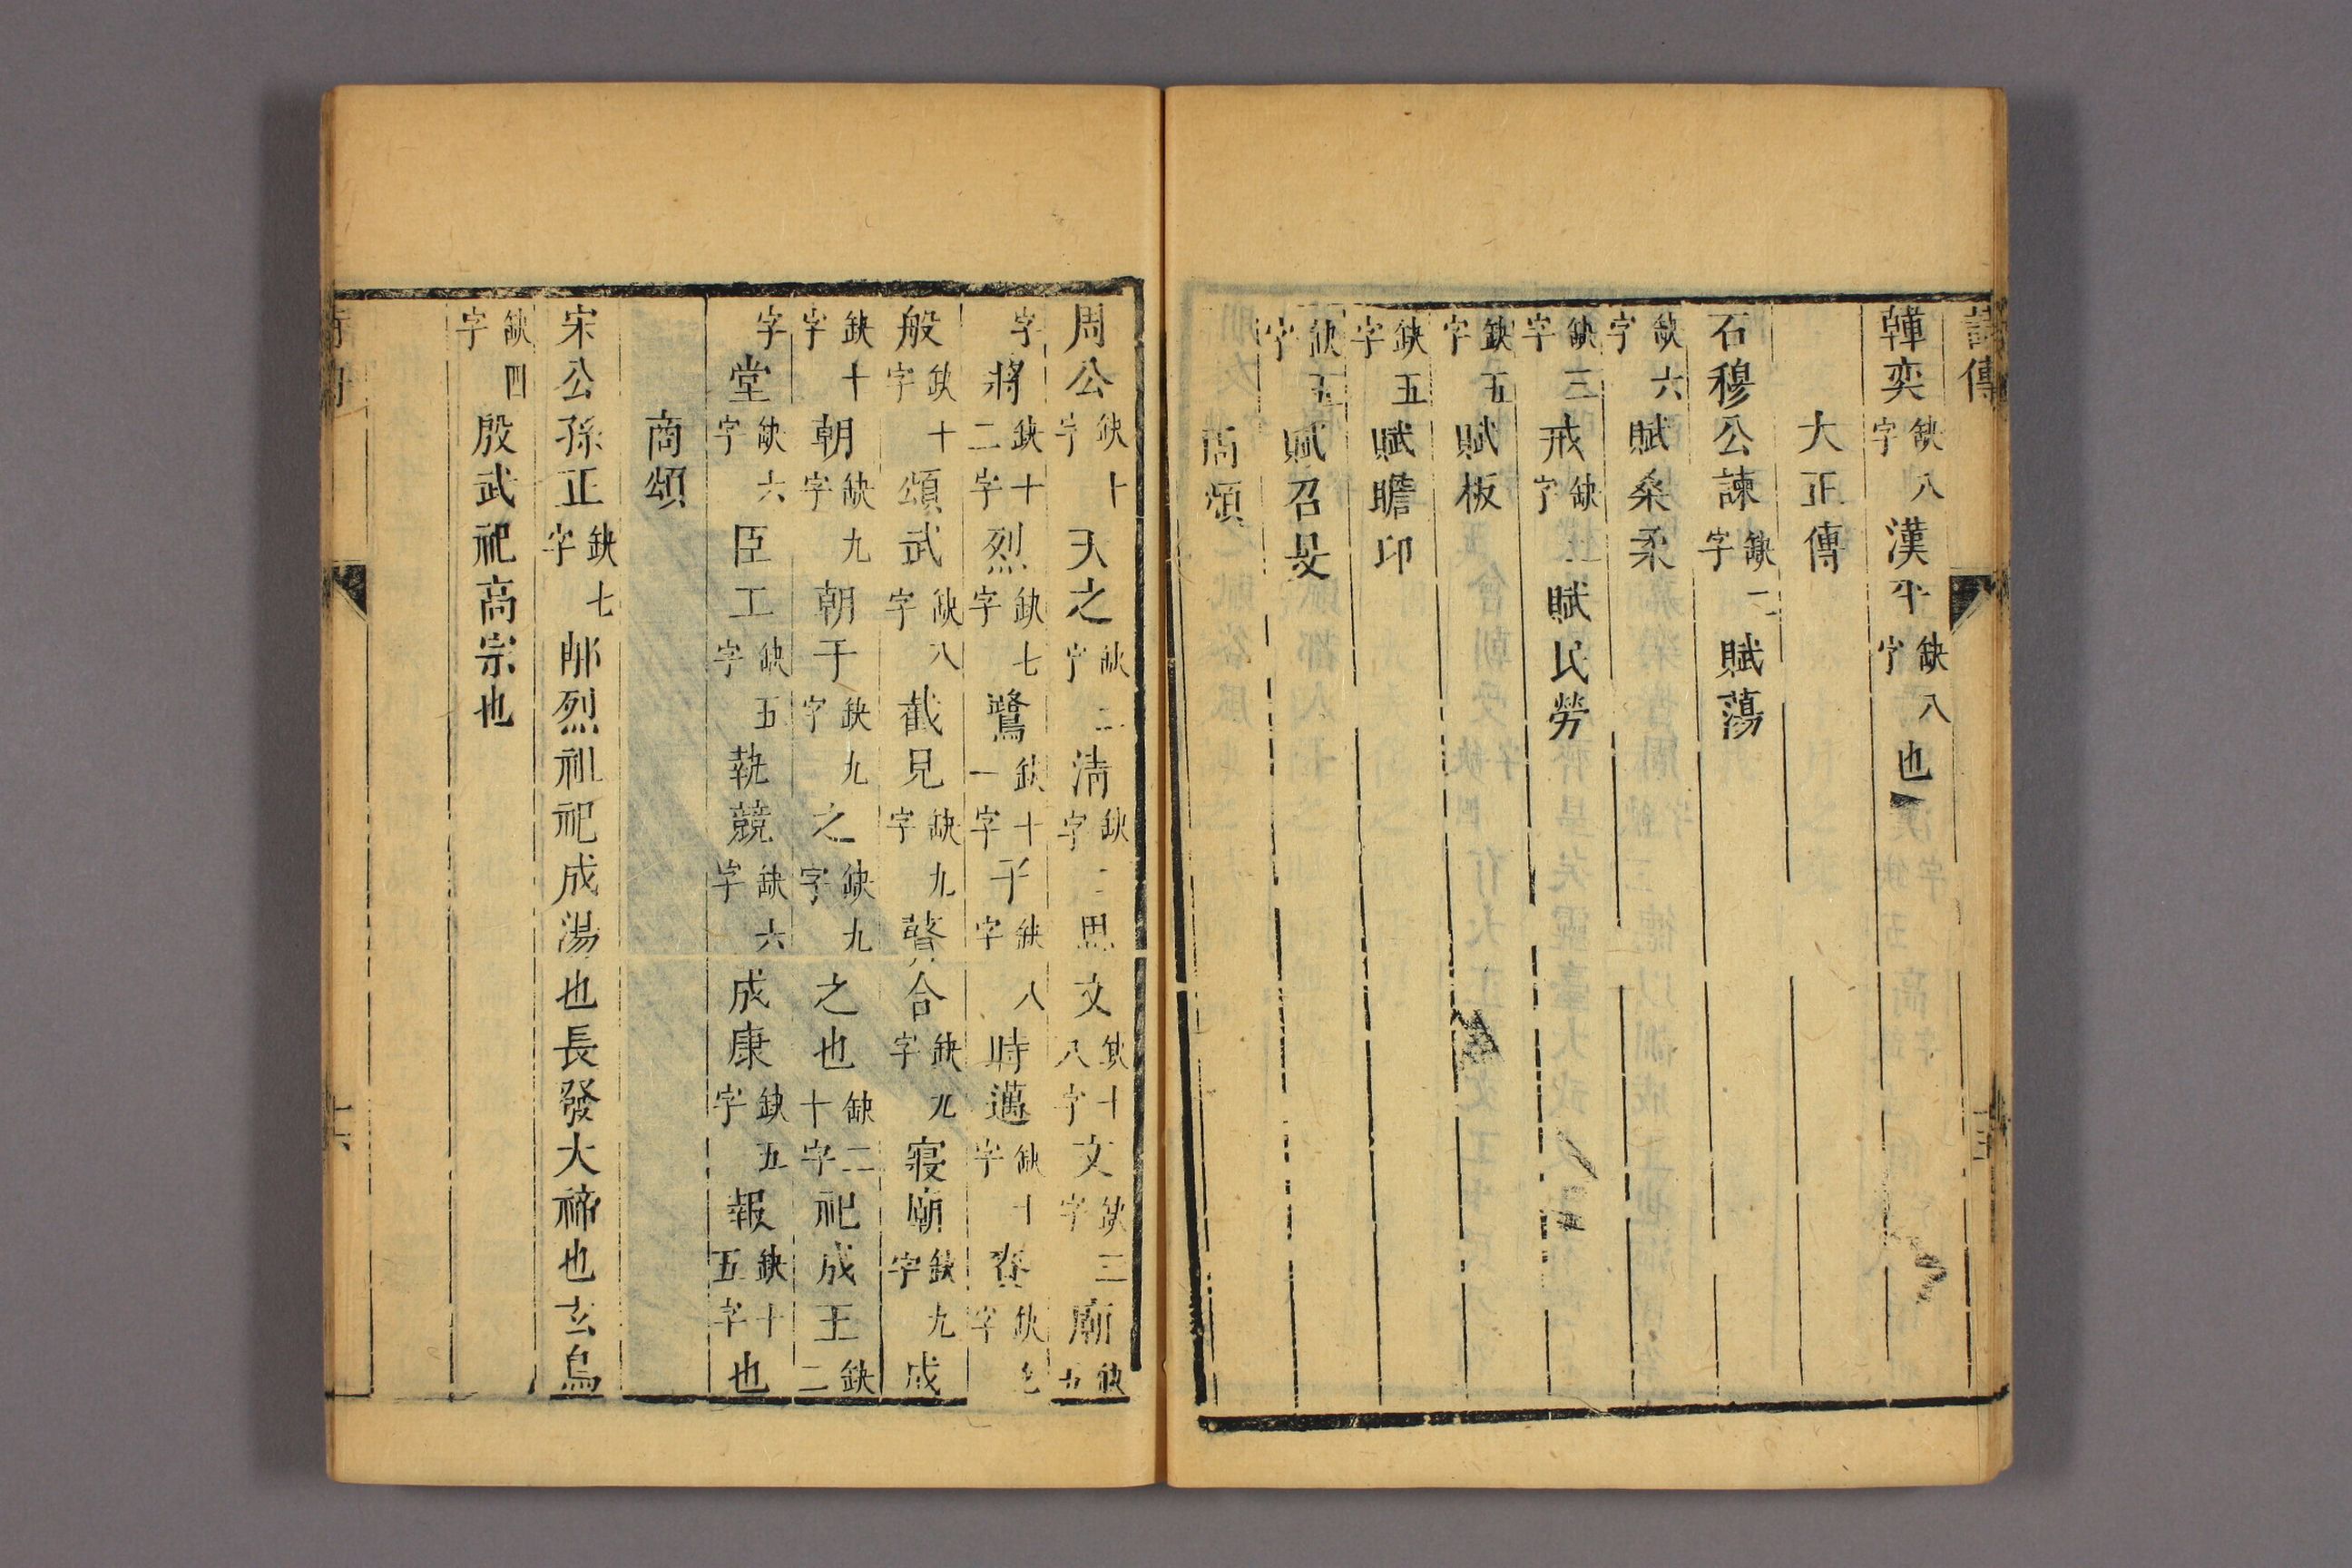 詩傳
韓奕缺八字漢平缺八字也
大正傳
石穆公諫缺二字賦蕩
缺六字賦桑柔
缺三字戒缺字賦民勞
缺五字賦板
缺五字賦瞻卬
缺五字賦召旻
商頌
周公缺十字天之缺二字清缺二字思文缺十八字文缺三字廟缺五
字將缺十二字烈缺七字鷺缺十一字于缺八字時邁缺十字賚缺七字
般缺十字頌武缺八字截見缺九字瞽合缺九字寢廟缺九字成
缺十字朝缺九字朝于缺九字之缺九字之也缺二十字祀成王缺二
字堂缺六字臣工缺五字執競缺六字成康缺五字報缺十五字也
商頌
宋公孫正缺七字那烈祖祀成湯也長發大禘也玄鳥
缺四字殷武祀高宗也